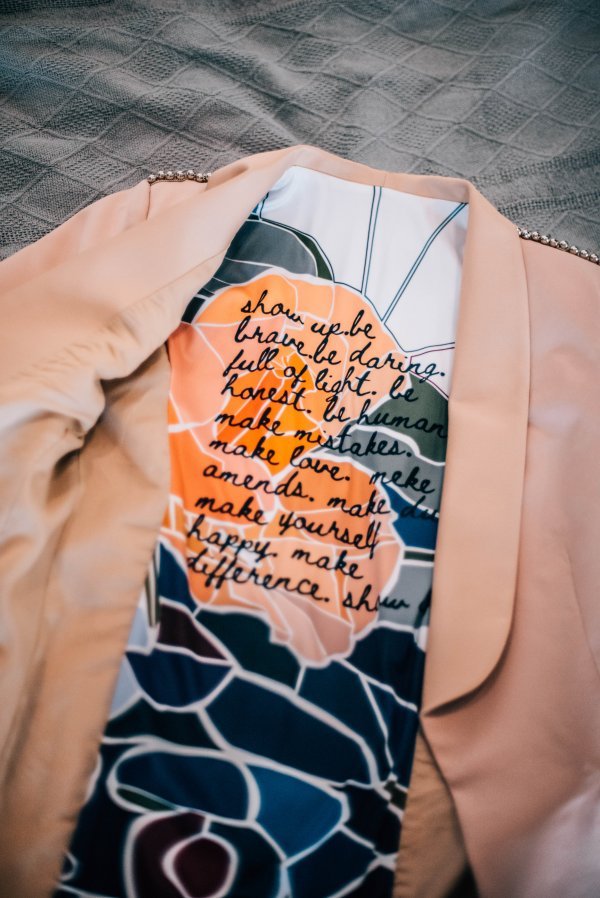 show up.be
brave.be daring.
full of light. be
honest. be human
make mistakes.
make love. meke
amends. make du
make yourself
happy. make
difference. show